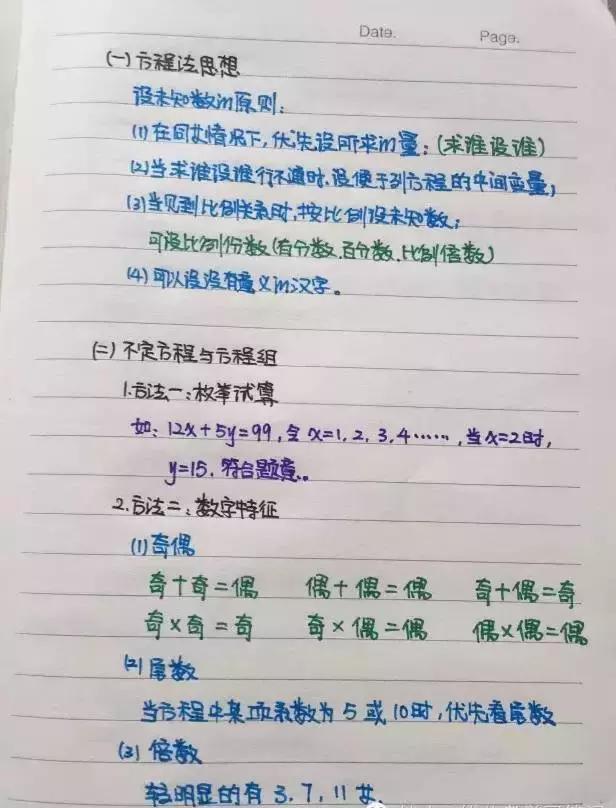 Date. Page.
(一)方程法思想
设未知数的原则:
(1)在同等情况下,优先设所求的量;(求谁设谁)
(2)当求谁设谁行不通时,设便于列方程的中间变量;
(3)当见到比例关系时,按比例设未知数;
可设比例份数(有分数、百分数、比例倍数)
(4)可以设没有意义的汉字。
(二)不定方程与方程组
1.方法一:枚举试算
如:12x+5y=99,令x=1,2,3,4……,当x=2时,
y=15,符合题意。
2.方法二:数字特征
(1)奇偶
奇+奇=偶 偶+偶=偶 奇+偶=奇
奇×奇=奇 奇×偶=偶 偶×偶=偶
(2)尾数
当方程中某项系数为5或10时,优先看尾数
(3)倍数
较明显的有3,7,11等